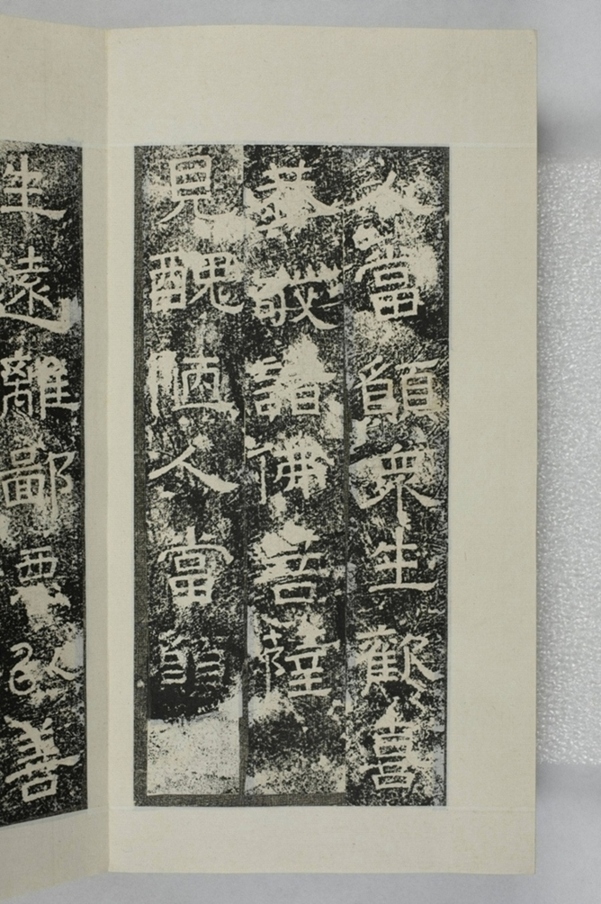 人當願衆生歡喜
恭敬諸佛菩薩
見醜陋人當願
生遠離鄙惡以善